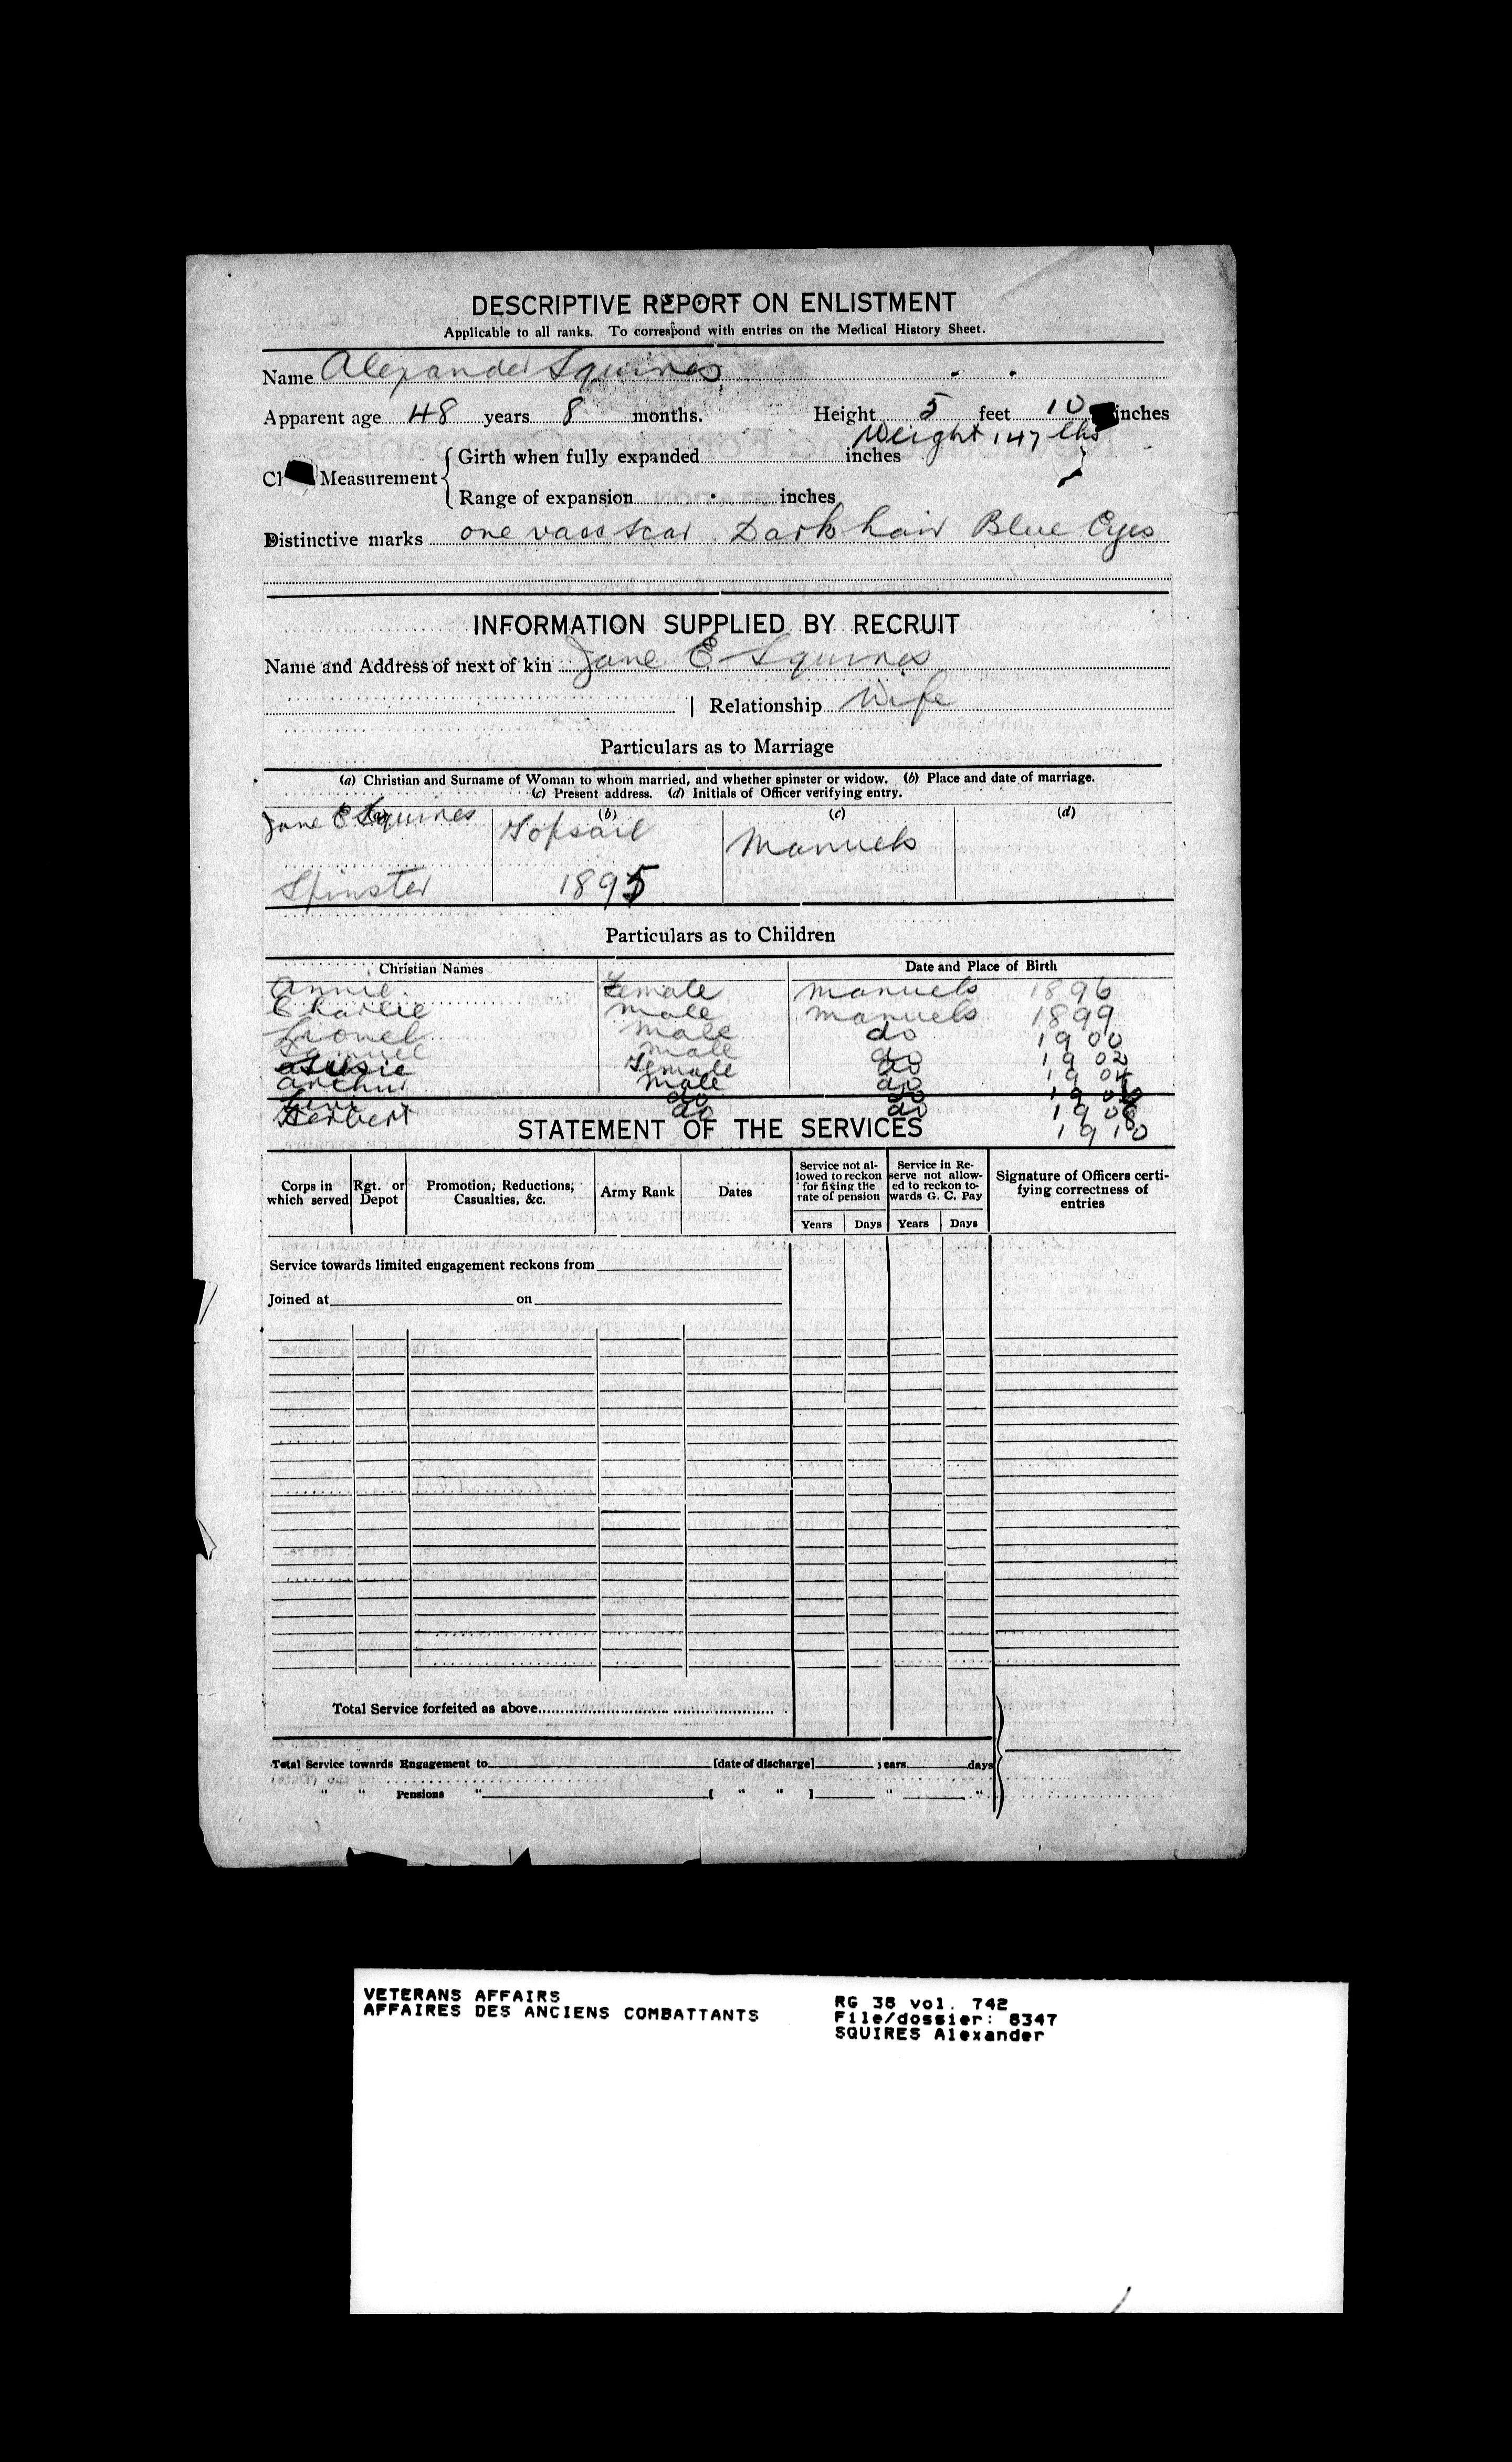 DESCRIPTIVE REPORT ON ENLISTMENT
Applicable to all ranks. To correspond with entries on the Medical History Sheet.
Name Alexander Squires
Apparent age 48 years 8 months. Height 5 feet 10 inches
Weight 147 lbs
Measurement Girth when fully expanded inches
Range of expansion inches
Distinctive marks one vacc scar Dark hair Blue Eyes
INFORMATION SUPPLIED BY RECRUIT
Name and Address of next of kin Jane E Squires
| Relationship Wife
Particulars as to Marriage
(a) Christian and Surname of Woman to whom married, and whether spinster or widow. (b) Place and date of marriage.
(c) Present address. (d) Initials of Officer verifying entry.
Jane E Squires (b) Topsail (c) Manuels (d)
Spinster 1895
Particulars as to Children
Christian Names Date and Place of Birth
Annie Female Manuels 1896
Charlie Male Manuels 1899
Lionel Male do 1900
Samuel Male do 1902
Female do 1904
Arthur Male do
do do 1908
Herbert do do 1910
STATEMENT OF THE SERVICES
Corps in which served Rgt. or Depot Promotion, Reductions, Casualties, &c. Army Rank Dates Service not allowed to reckon for fixing the rate of pension Service in Reserve not allowed to reckon towards G. C. Pay Signature of Officers certifying correctness of entries
Years Days Years Days
Service towards limited engagement reckons from
Joined at on
Total Service forfeited as above
Total Service towards Engagement to [date of discharge] years days
" " Pensions " [ " " ] " "
VETERANS AFFAIRS
AFFAIRES DES ANCIENS COMBATTANTS
RG 38 vol. 742
File/dossier: 8347
SQUIRES Alexander